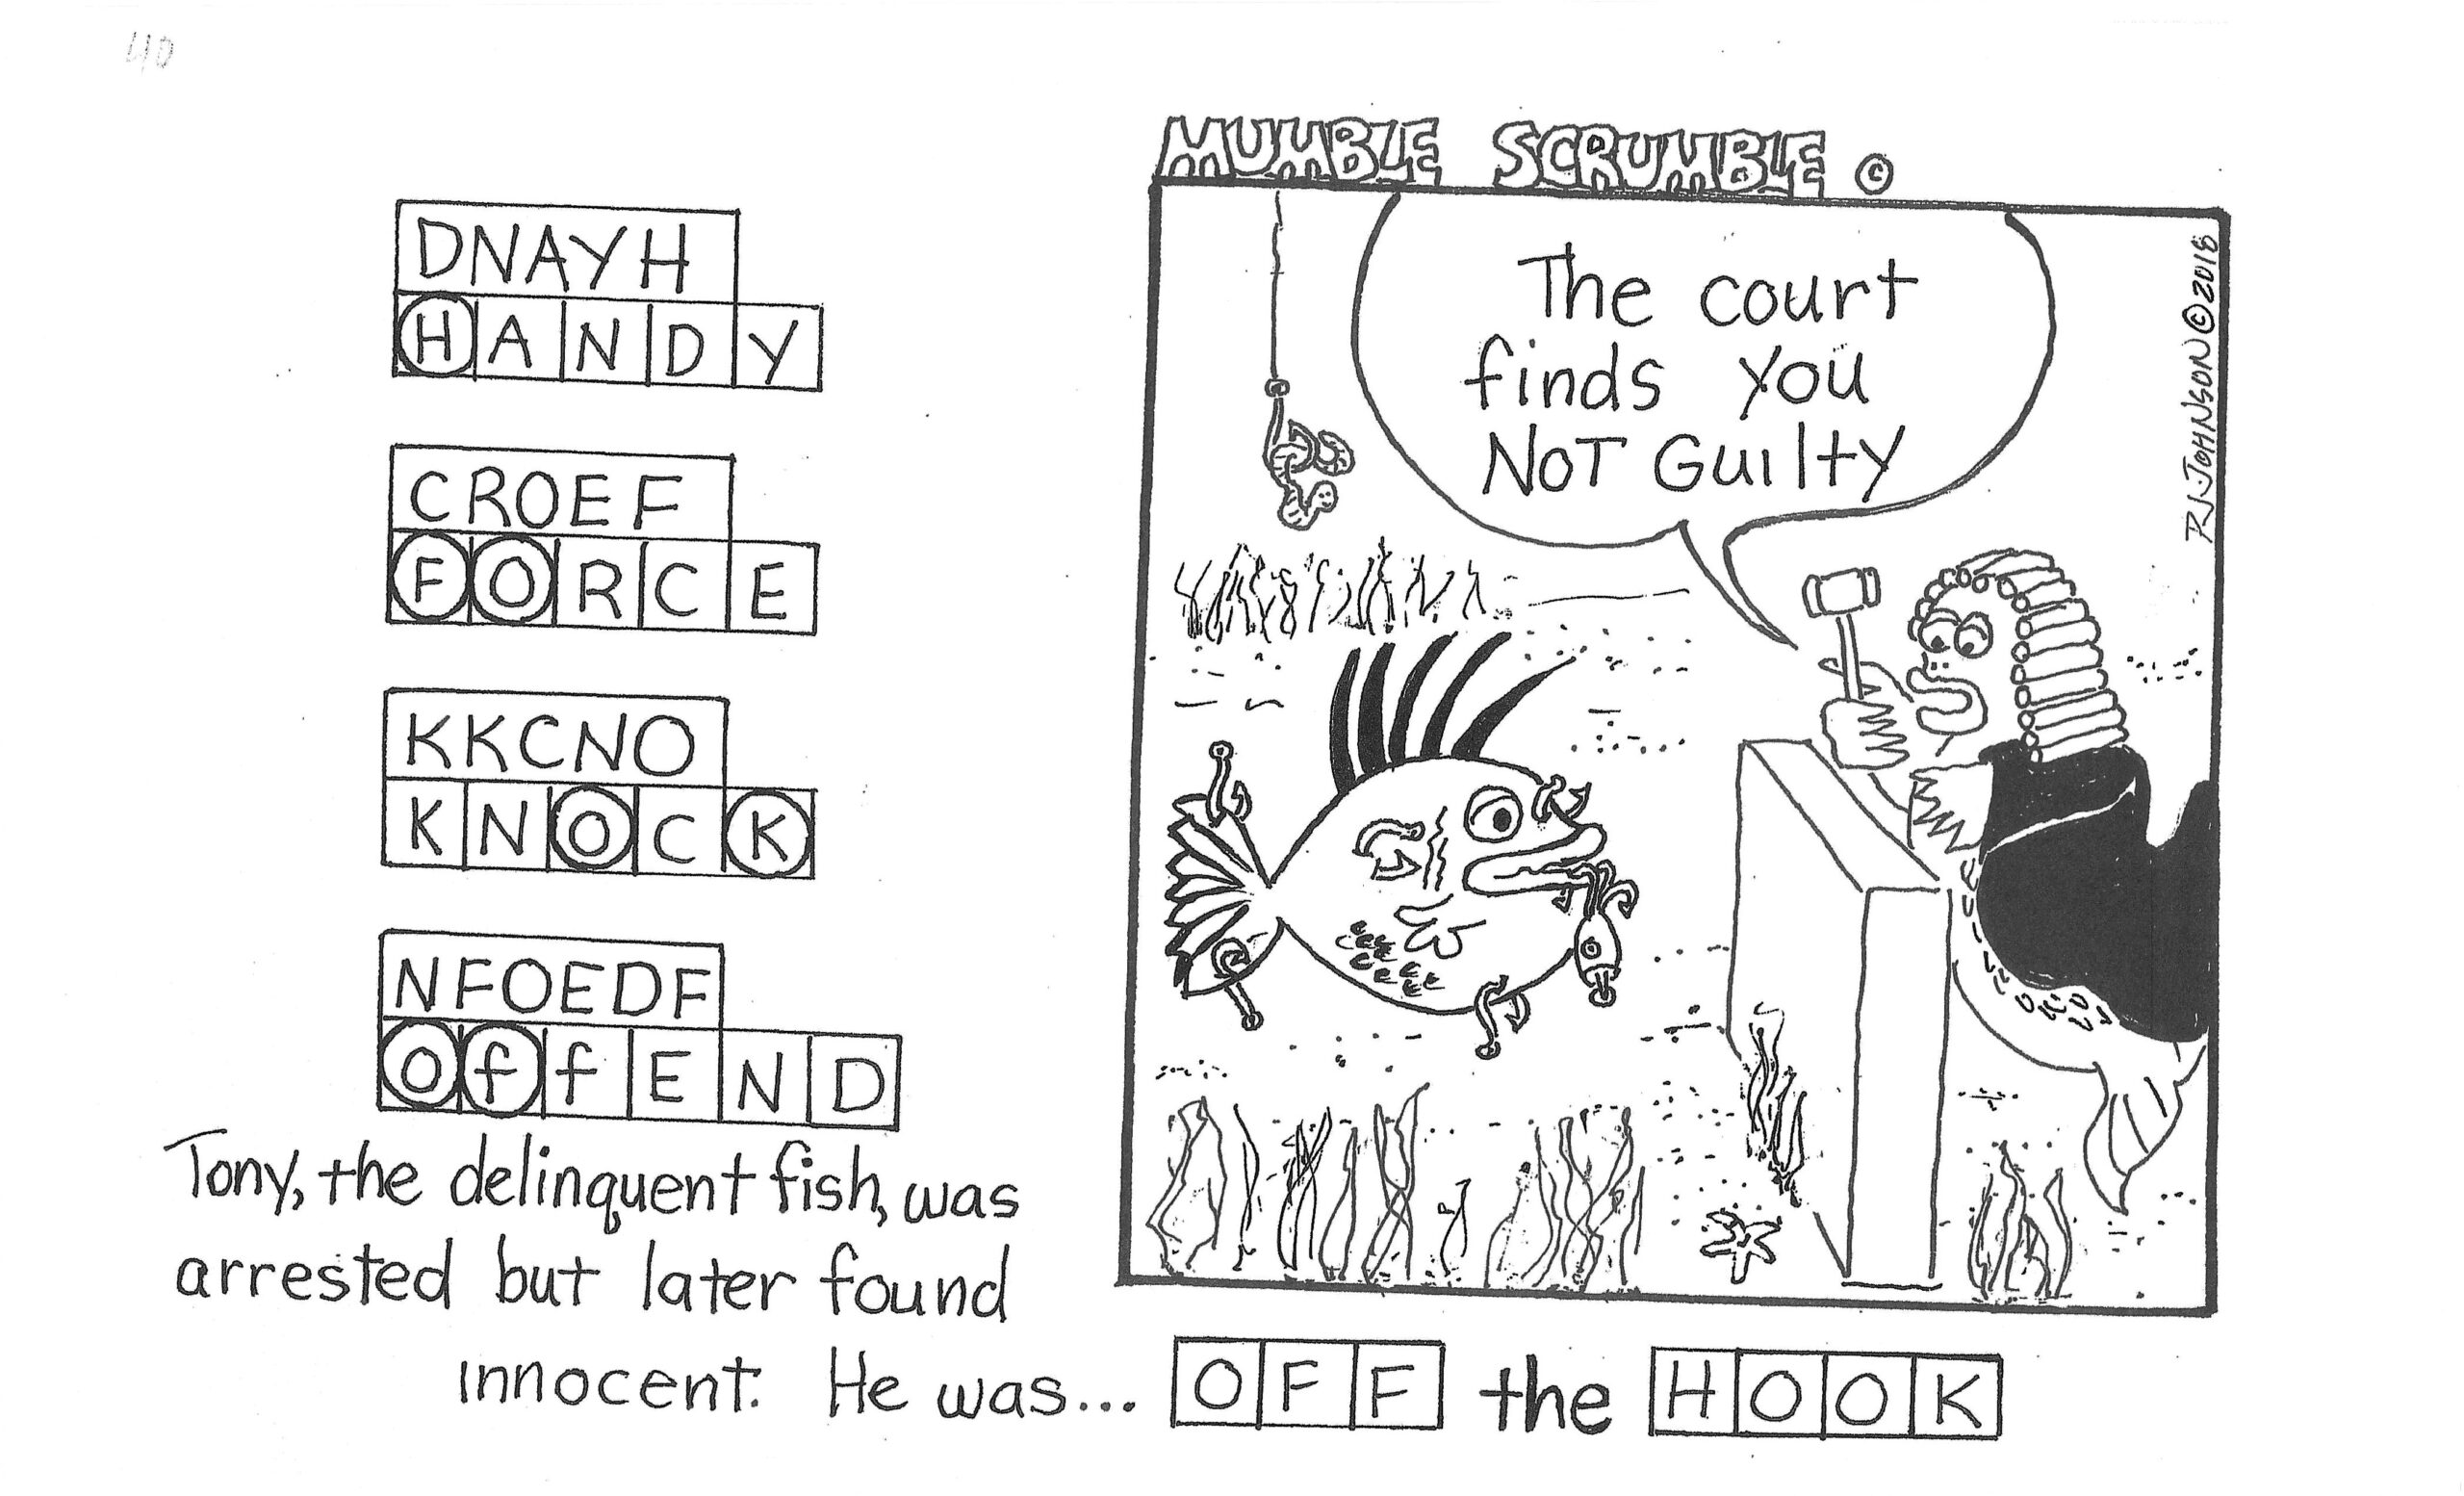 40
MUMBLE SCRUMBLE ©
DNAYH
HANDY
CROEF
FORCE
KKCNO
KNOCK
NFOEDF
OffEND
The court
finds you
NOT Guilty
JOHNSON © 2018
Tony, the delinquent fish, was
arrested but later found
innocent. He was... OFF the HOOK